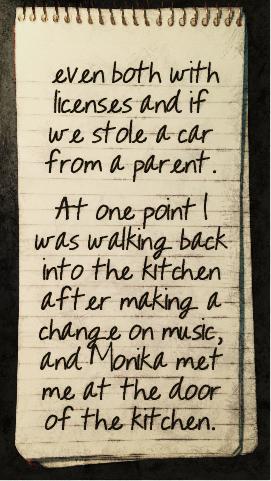 even both with
licenses and if
we stole a car
from a parent.
At one point I
was walking back
into the kitchen
after making a
change on music,
and Monika met
me at the door
of the kitchen.